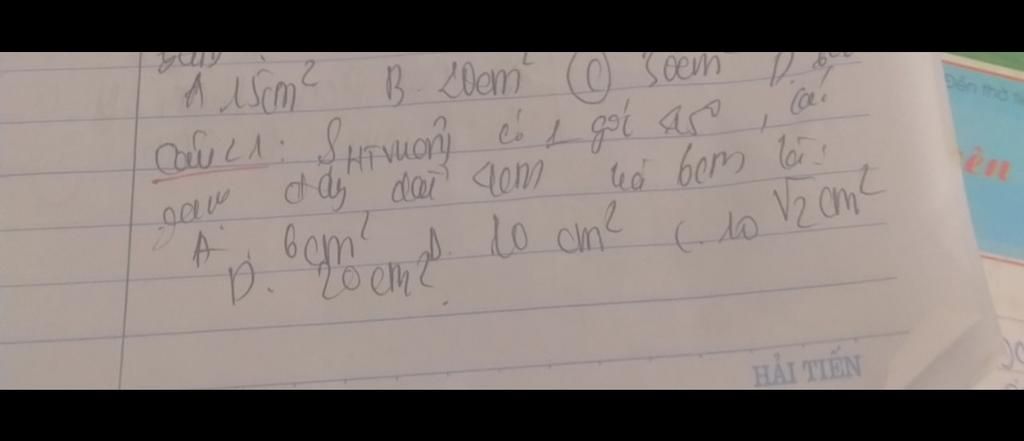 A 15cm² B. 20cm² (C) 30cm² D
Câu 21: S HTvuông có 1 góc 45°, các
đáy dài 4cm và 6cm là:
A. 6cm² B. 10 cm² C. 10 √2 cm²
D. 20cm².
HẢI TIẾN
Đền thờ
ên